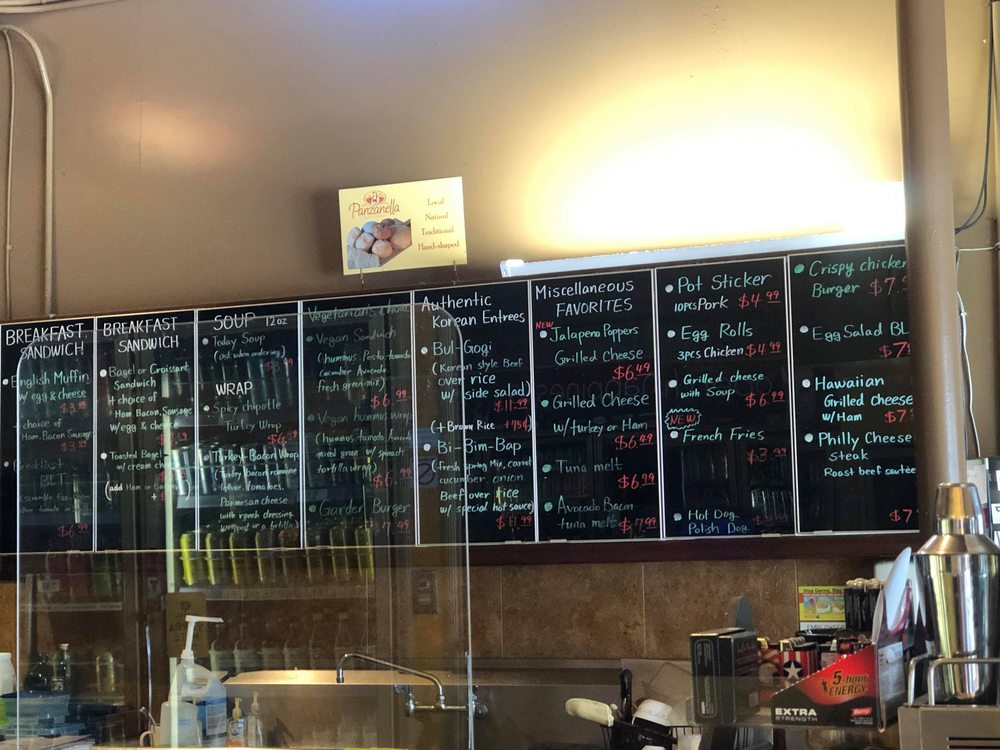 Panzanella
Local
Natural
Traditional
Hand-shaped
BREAKFAST
SANDWICH
English Muffin
w/ egg & cheese
choice of
Ham, Bacon, Sausage
BREAKFAST
SANDWICH
Bagel or Croissant
Sandwich
choice of
Ham, Bacon, Sausage
w/egg & cheese
Toasted Bagel
w/ cream
(add Ham or
SOUP 12oz
Today Soup
(ask when ordering)
WRAP
Spicy chipotle
Turkey Wrap
Turkey-Bacon Wrap
(Turkey bacon romaine
lettuce, tomatoes,
Parmesan cheese
with ranch dressing
wrapped in a tortilla)
Vegetarian's
Vegan Sandwich
(hummus Pesto tomato
cucumber Avocado
fresh green mix)
$6.99
Vegan hummus wrap
(hummus tomato Avocado
mixed green w/ spinach
tortilla wrap)
$6.99
Garden Burger
Authentic
Korean Entrees
Bul-Gogi
(Korean style Beef
over rice
w/ side salad)
$11.99
(+Brown Rice +75¢)
Bi-Bim-Bap
(Fresh spring Mix, carrot
cucumber, onion
Beef over rice
w/ special hot sauce)
$11.99
Miscellaneous
FAVORITES
NEW
Jalapeno Poppers
Grilled Cheese
$6.49
Grilled Cheese
w/Turkey or Ham
$6.49
Tuna melt
$6.99
Avocado Bacon
tuna melt $7.99
Pot Sticker
10PCS Pork $4.99
Egg Rolls
3PCS Chicken $4.99
Grilled cheese
with Soup $6.99
NEW
French Fries
$3.99
Hot Dog
Polish Dog
Crispy chicken
Burger $7.
Egg Salad BL
$7
Hawaiian
Grilled Cheese
w/Ham $7
Philly Cheese
steak
Roast beef sautee
$7
5-hour
ENERGY
EXTRA
STRENGTH
Berry